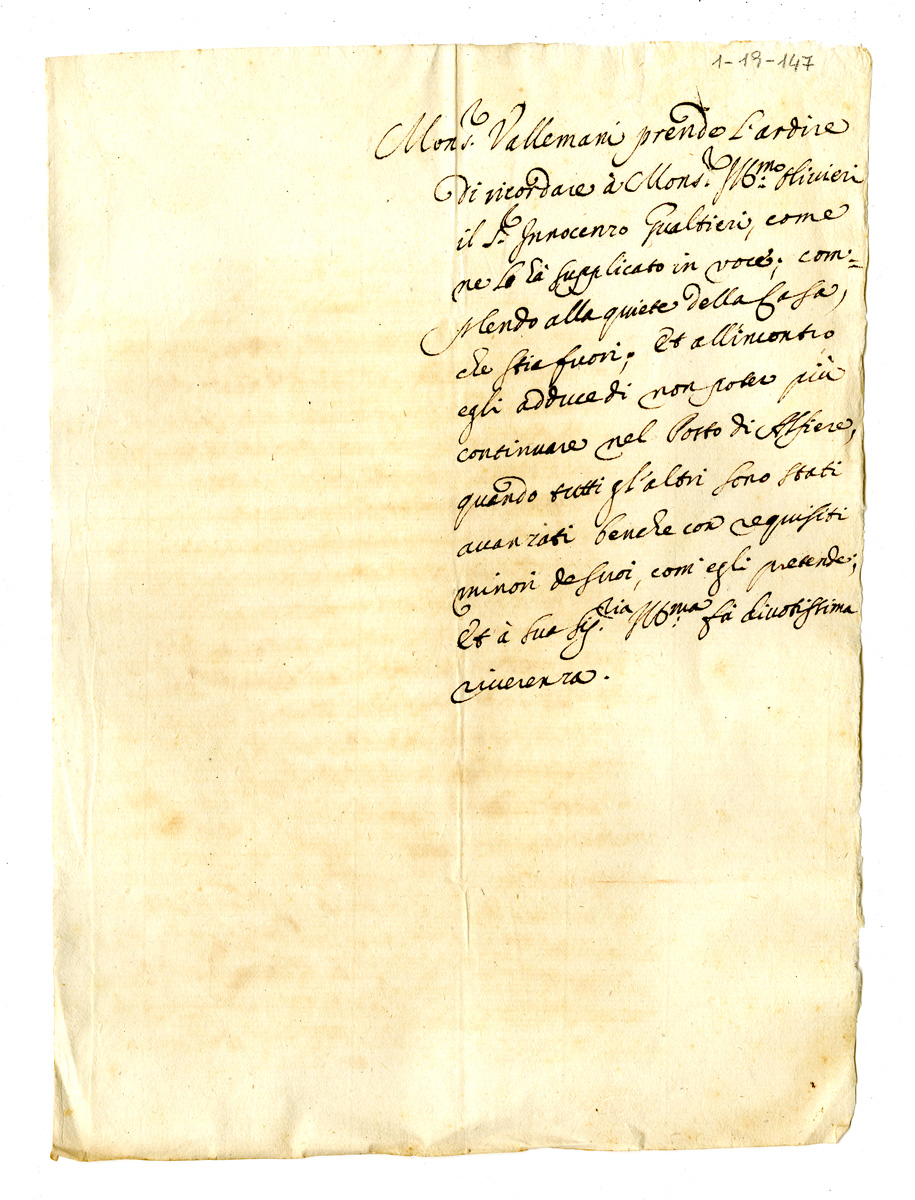 1-19-147
Mons.r Vallemani prende l'ardire
di ricordare à Mons.r Ill.mo Olivieri
il S.r Innocenzo Gualtieri, come
ne lo hà supplicato in voce; com=
plendo alla quiete della Casa,
che stia fuori; Et all'incontro
egli adduce di non poter più
continuare nel Posto di Alfiere,
quando tutti gl'altri sono stati
avanzati benche con requisiti
minori de suoi, com'egli pretende;
Et à Sua Sig.ria Ill.ma fà divotissima
riverenza.